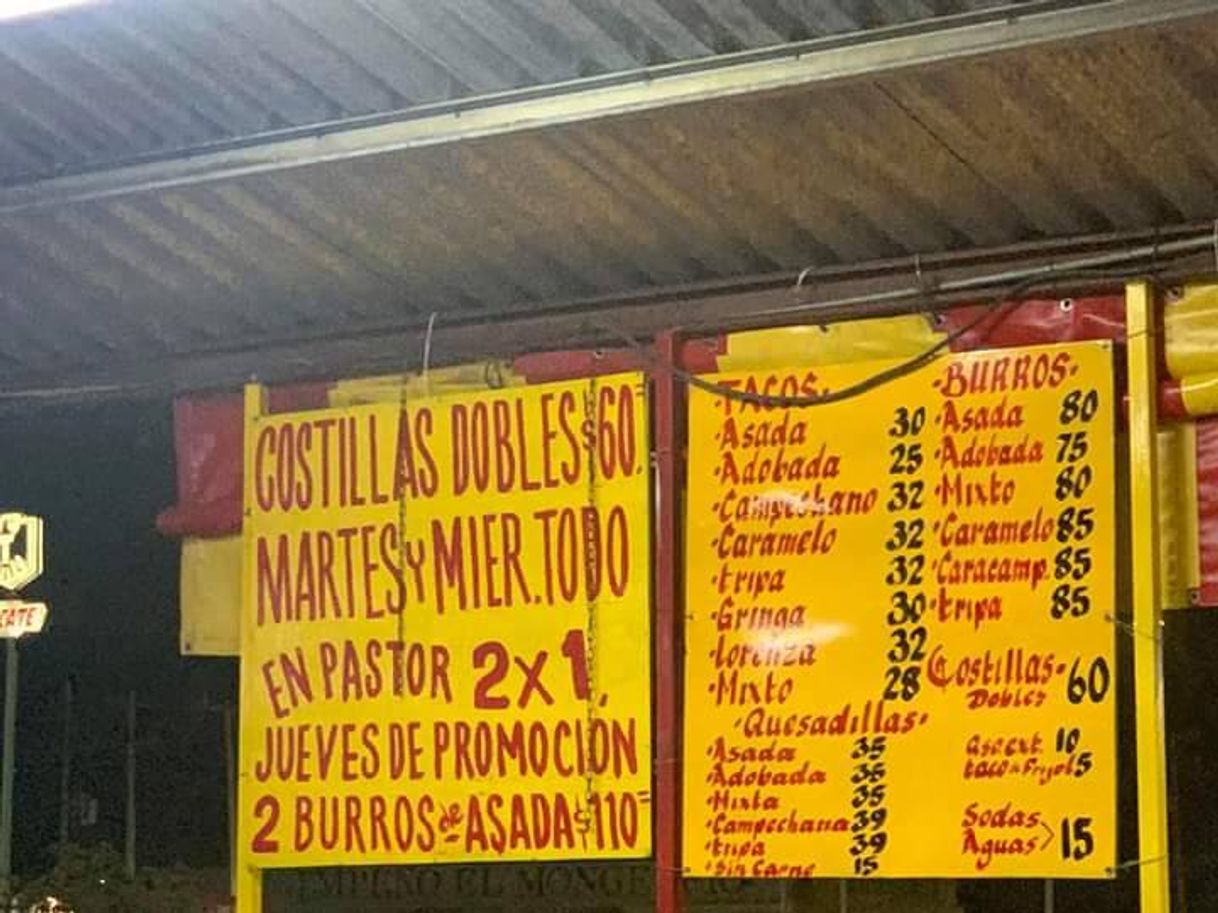 COSTILLAS DOBLES $60.=
MARTES Y MIER. TODO
EN PASTOR 2x1,
JUEVES DE PROMOCIÓN
2 BURROS de ASADA $110=
·TACOS·
·Asada 30
·Adobada 25
·Campechano 32
·Caramelo 32
·tripa 32
·Gringa 30
·Lorenza 32
·Mixto 28
·Quesadillas·
·Asada 35
·Adobada 35
·Mixta 35
·Campechana 39
·tripa 39
·Sin Carne 15
·BURROS·
·Asada 80
·Adobada 75
·Mixto 80
·Caramelo 85
·Caracamp. 85
·tripa 85
Costillas· 60
Dobles
10
5
Sodas
Aguas 15
CATE